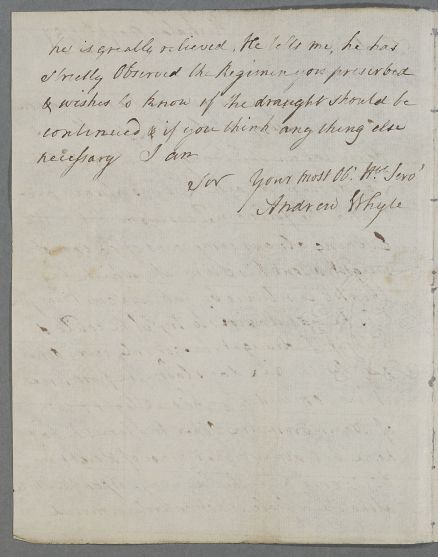 he is greatly relieved. He tells me, he has
strictly Observed the Regimen you prescribed
& wishes to know if the draught should be
continued & if you think any thing else
necessary I am
Sir Your most Ob.t H.le Serv.t
Andrew Whyte